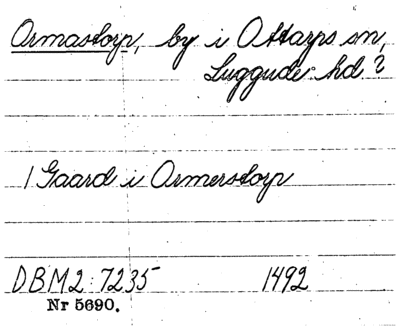 Ormastorp, by i Ottarps sn,
Luggude hd?
1 Gaard i Ormerstorp
DBM2:7235 1492
Nr 5690.